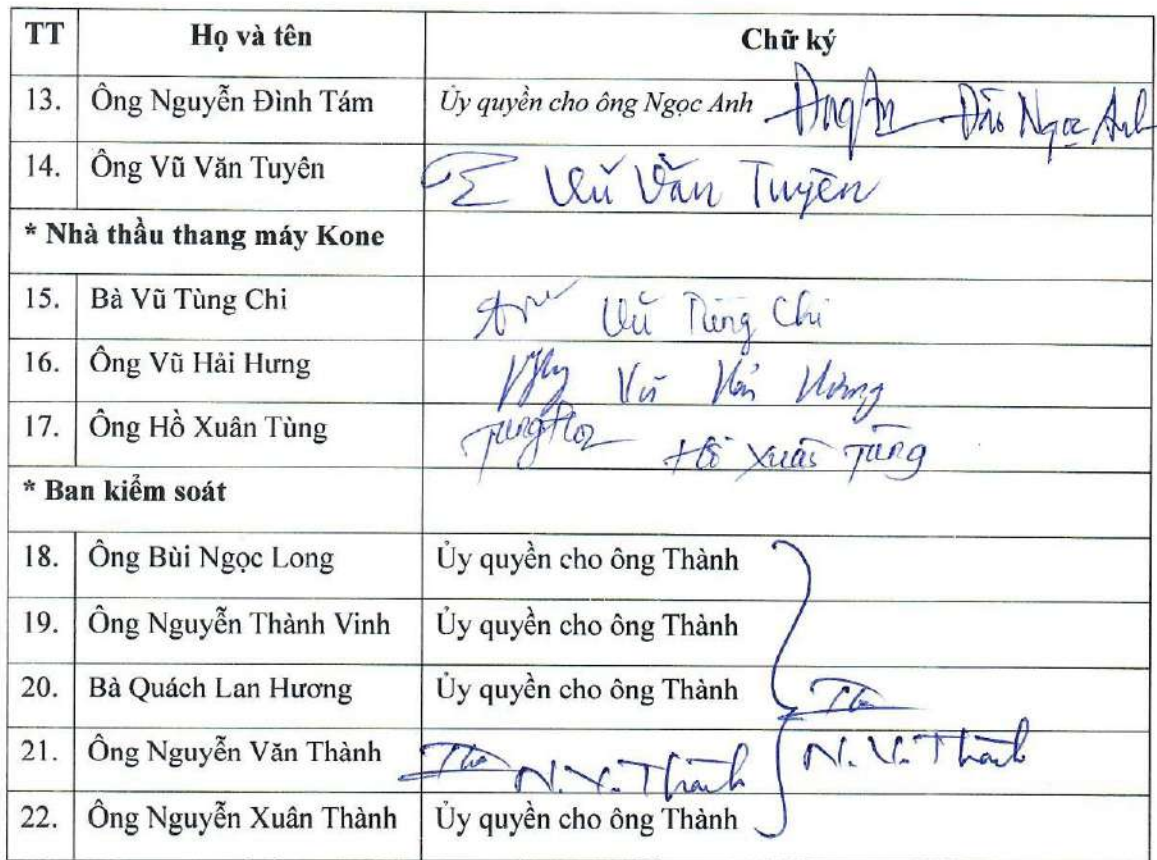 TT Họ và tên Chữ ký
13. Ông Nguyễn Đình Tám Ủy quyền cho ông Ngọc Anh Đào Ngọc Anh
14. Ông Vũ Văn Tuyên Vũ Văn Tuyên
* Nhà thầu thang máy Kone
15. Bà Vũ Tùng Chi Vũ Tùng Chi
16. Ông Vũ Hải Hưng Vũ Hải Hưng
17. Ông Hồ Xuân Tùng Hồ Xuân Tùng
* Ban kiểm soát
18. Ông Bùi Ngọc Long Ủy quyền cho ông Thành
19. Ông Nguyễn Thành Vinh Ủy quyền cho ông Thành
20. Bà Quách Lan Hương Ủy quyền cho ông Thành
21. Ông Nguyễn Văn Thành N.V.Thành N.V.Thành
22. Ông Nguyễn Xuân Thành Ủy quyền cho ông Thành